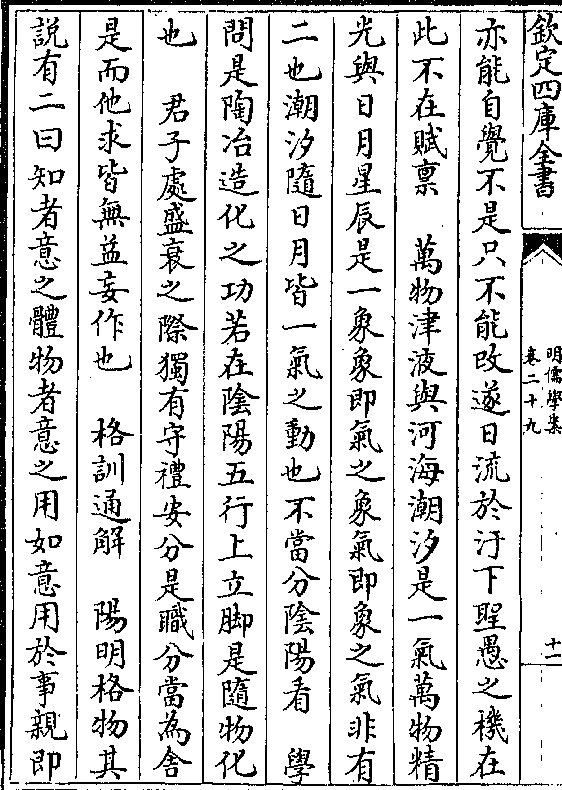 欽定四庫全書
明儒學案
卷二十九
十一
亦能自覺不是只不能改遂日流於汙下聖愚之機在
此不在賦禀　萬物津液與河海潮汐是一氣萬物精
光與日月星辰是一象象即氣之象氣即象之氣非有
二也潮汐隨日月皆一氣之動也不當分陰陽看　學
問是陶冶造化之功若在陰陽五行上立脚是隨物化
也　君子處盛衰之際獨有守禮安分是職分當為舍
是而他求皆無益妄作也　格訓通解　陽明格物其
説有二曰知者意之體物者意之用如意用於事親即